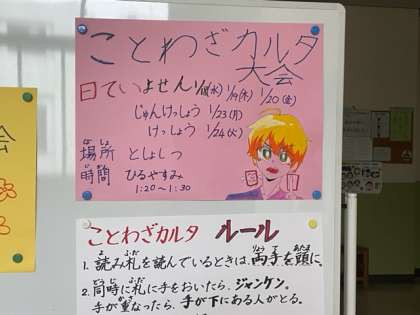 ことわざカルタ
大会
日てい よせん 1/18(水) 1/19(木) 1/20(金)
じゅんけっしょう 1/23(月)
けっしょう 1/24(火)
場所 としょしつ
時間 ひるやすみ
1:20〜1:30
会
ことわざカルタ ルール
1. 読み札を読んでいるときは、両手を頭に。
2. 同時に札に手をおいたら、ジャンケン。
手が重なったら、手が下にある人がとる。